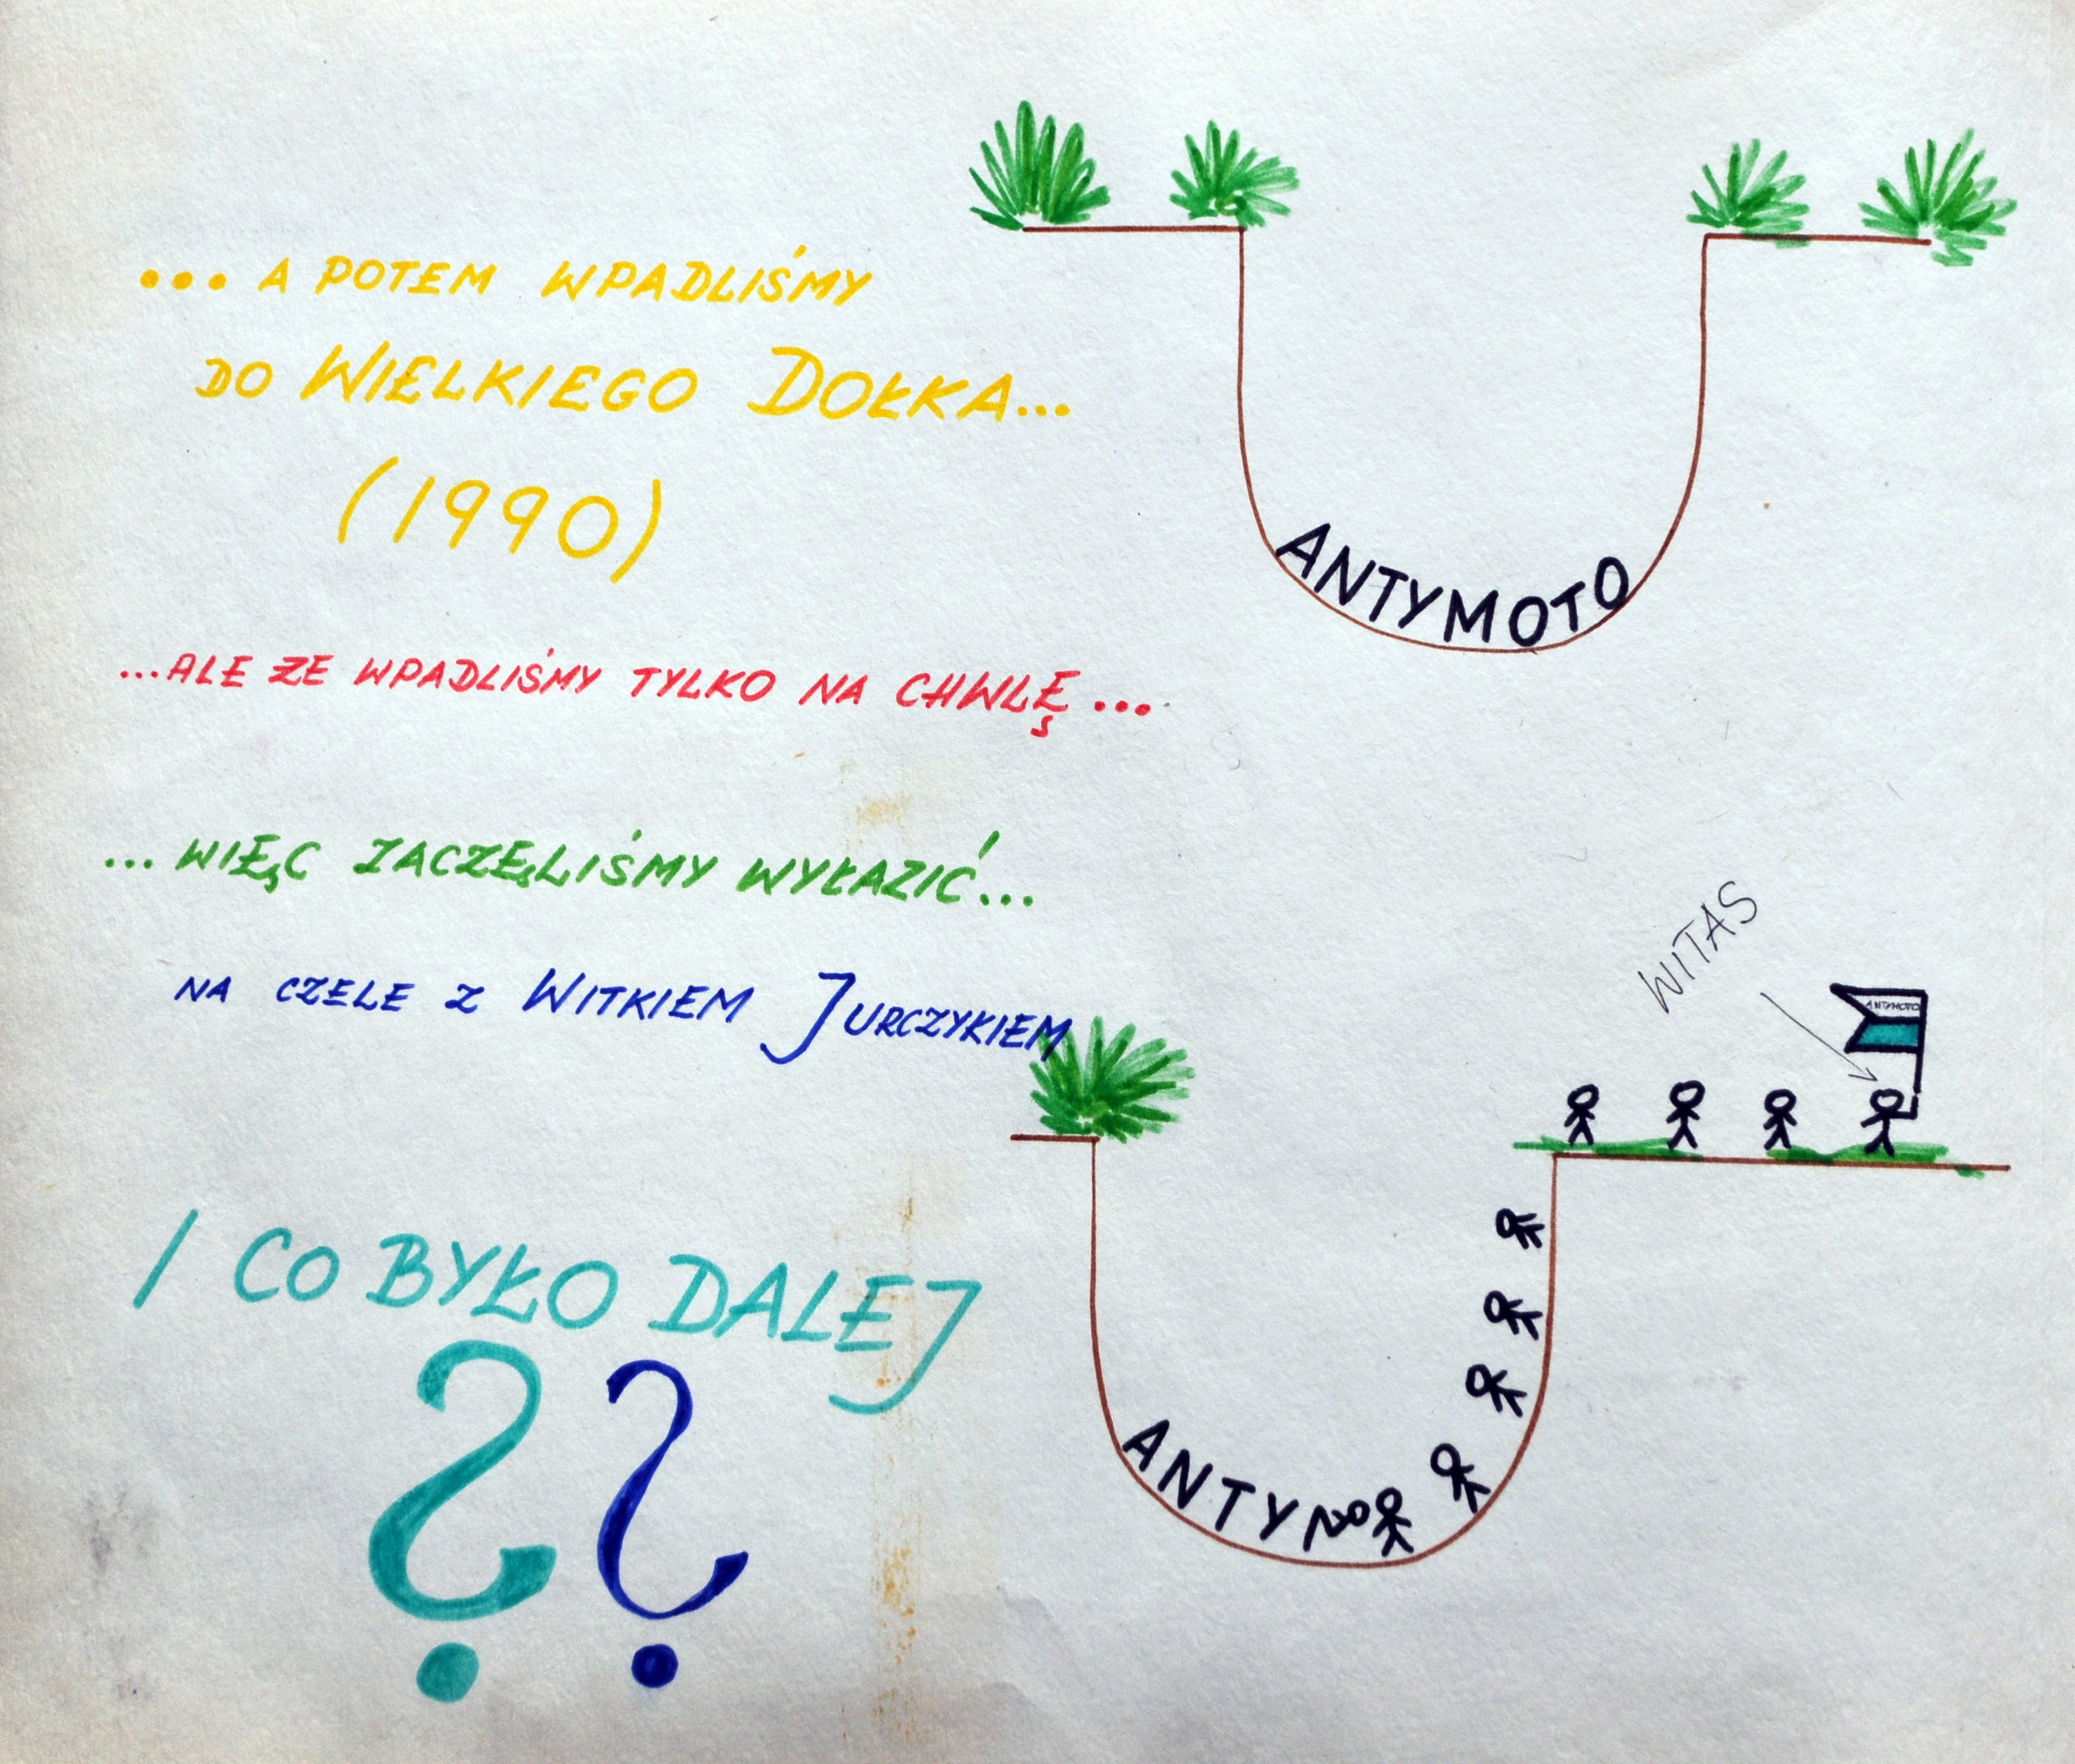 ... A POTEM WPADLIŚMY
DO WIELKIEGO DOŁKA...
(1990)
ANTYMOTO
...ALE ŻE WPADLIŚMY TYLKO NA CHWLĘ...
... WIĘC ZACZĘLIŚMY WYŁAZIĆ...
NA CZELE Z WITKIEM JURCZYKIEM
WITAS
ANTYMOTO
I CO BYŁO DALEJ
??
ANTYMO